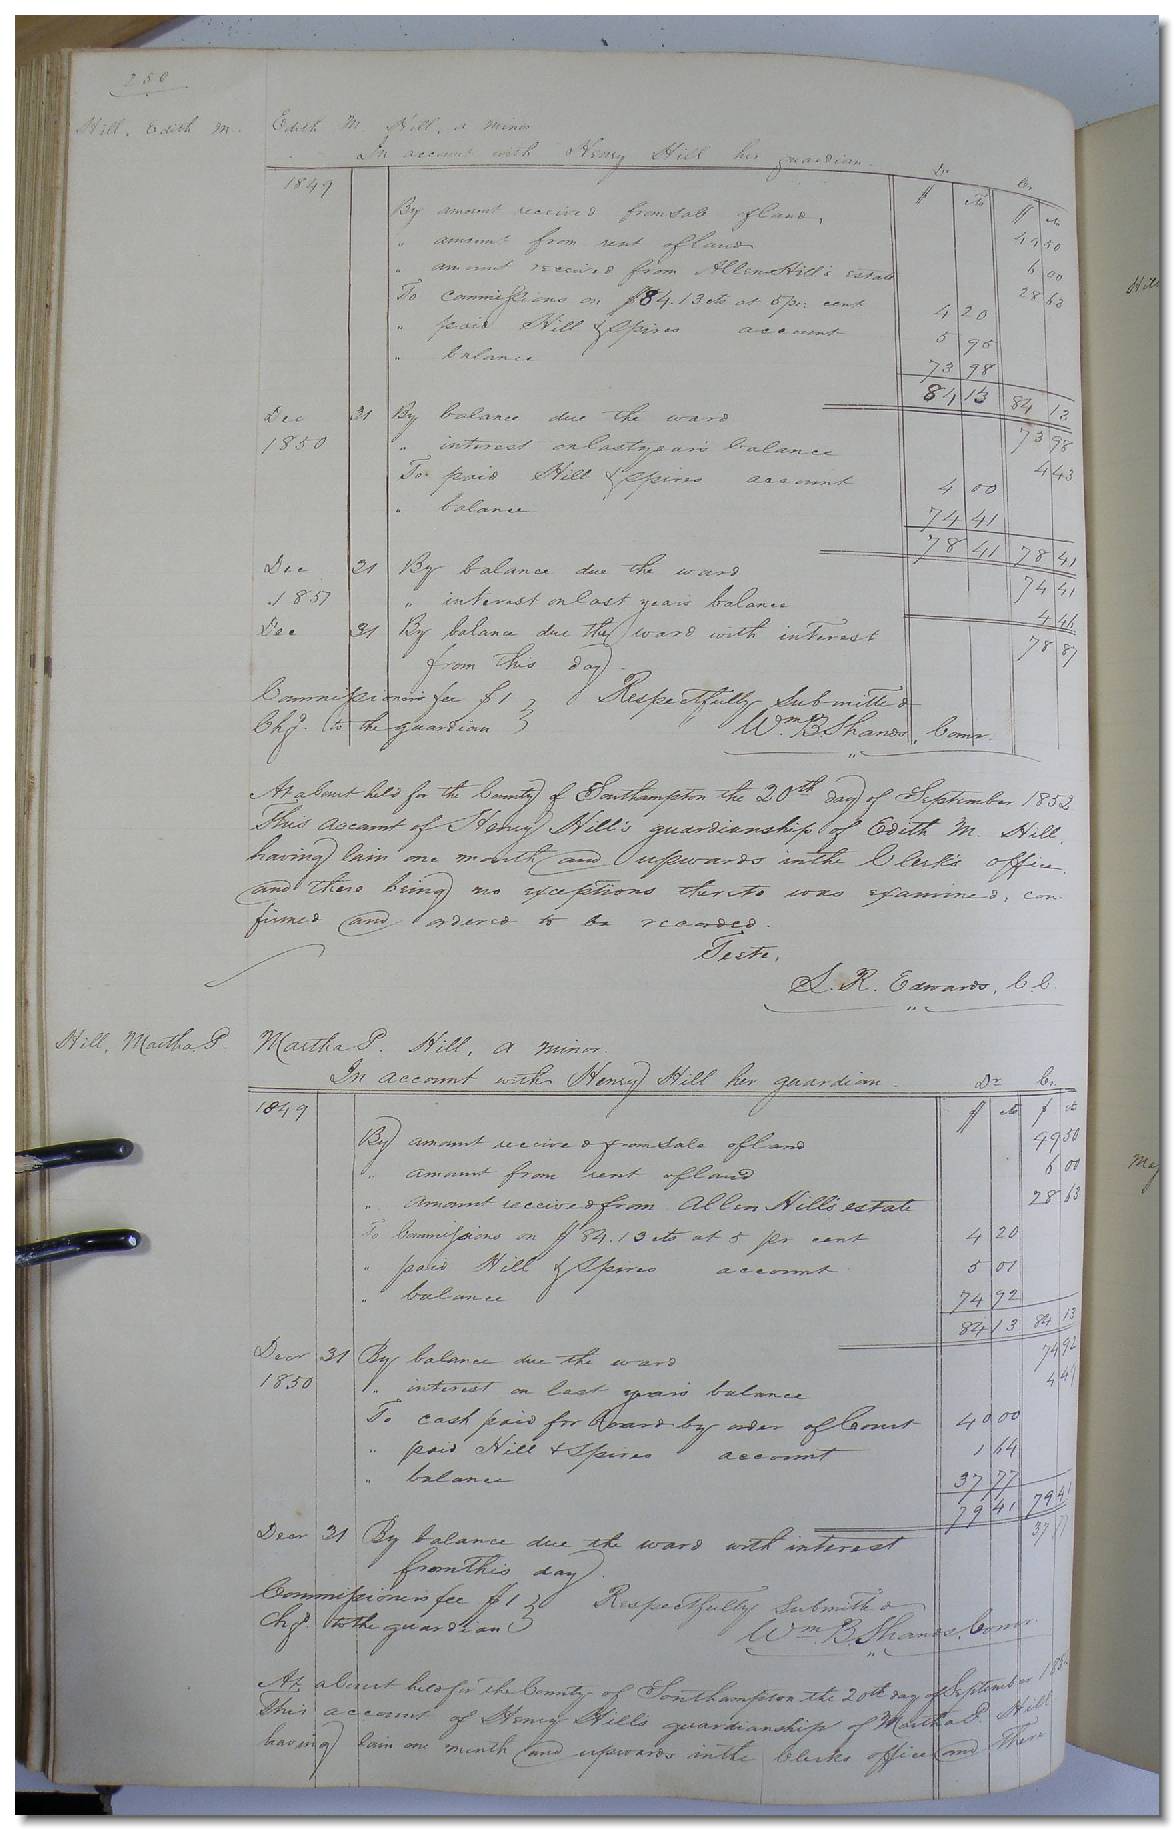 250
Hill, Edith M. Edith M. Hill, a minor
In account with Henry Hill her guardian. Dr. Cr.
1849 $ cts $ cts
By amount received from sale of land, 49 50
" amount from rent of land 6 00
" amount received from Allen Hill's estate 28 63
To commissions on $84.13 cts at 5 pr. cent 4 20
" paid Hill & Spires account 5 95
" balance 73 98
84 13 84 13
Dec 31 By balance due the ward 73 98
1850 " interest on last year's balance 4 43
To paid Hill & Spires account 4 00
" balance 74 41
78 41 78 41
Dec 31 By balance due the ward 74 41
1851 " interest on last years balance 4 46
Dec 31 By balance due the ward with interest 78 87
from this day.
Commissioner's fee $1 } Respectfully submitted
Chg. to the guardian } Wm. B. Shands, Comr.
At a Court held for the County of Southampton the 20th day of September 1852
This account of Henry Hill's guardianship of Edith M. Hill
having lain one month and upwards in the Clerk's office
and there being no exceptions thereto was examined, con
firmed and ordered to be recorded.
Teste,
L. R. Edwards, C.C.
Hill, Martha P. Martha P. Hill, a minor.
In account with Henry Hill her guardian. Dr. Cr.
1849 $ cts $ cts
By amount received from sale of land 49 50
" amount from rent of land 6 00
" amount received from Allen Hill's estate 28 63
To Commissions on $84.13 cts at 5 pr cent 4 20
" paid Hill & Spires account 5 01
" balance 74 92
84 13 84 13
Decr 31 By balance due the ward 74 92
1850 " interest on last years balance 4 49
To cash paid for board by order of Court 40 00
" paid Hill & Spires account 1 64
" balance 37 77
79 41 79 41
Decr 31 By balance due the ward with interest 37 77
from this day.
Commissioner's fee $1 } Respectfully submitted
Chg. to the guardian } Wm. B. Shands, Comr.
At a Court held for the County of Southampton the 20th day of September 1852
This account of Henry Hills guardianship of Martha P. Hill
having lain one month and upwards in the Clerks office and then